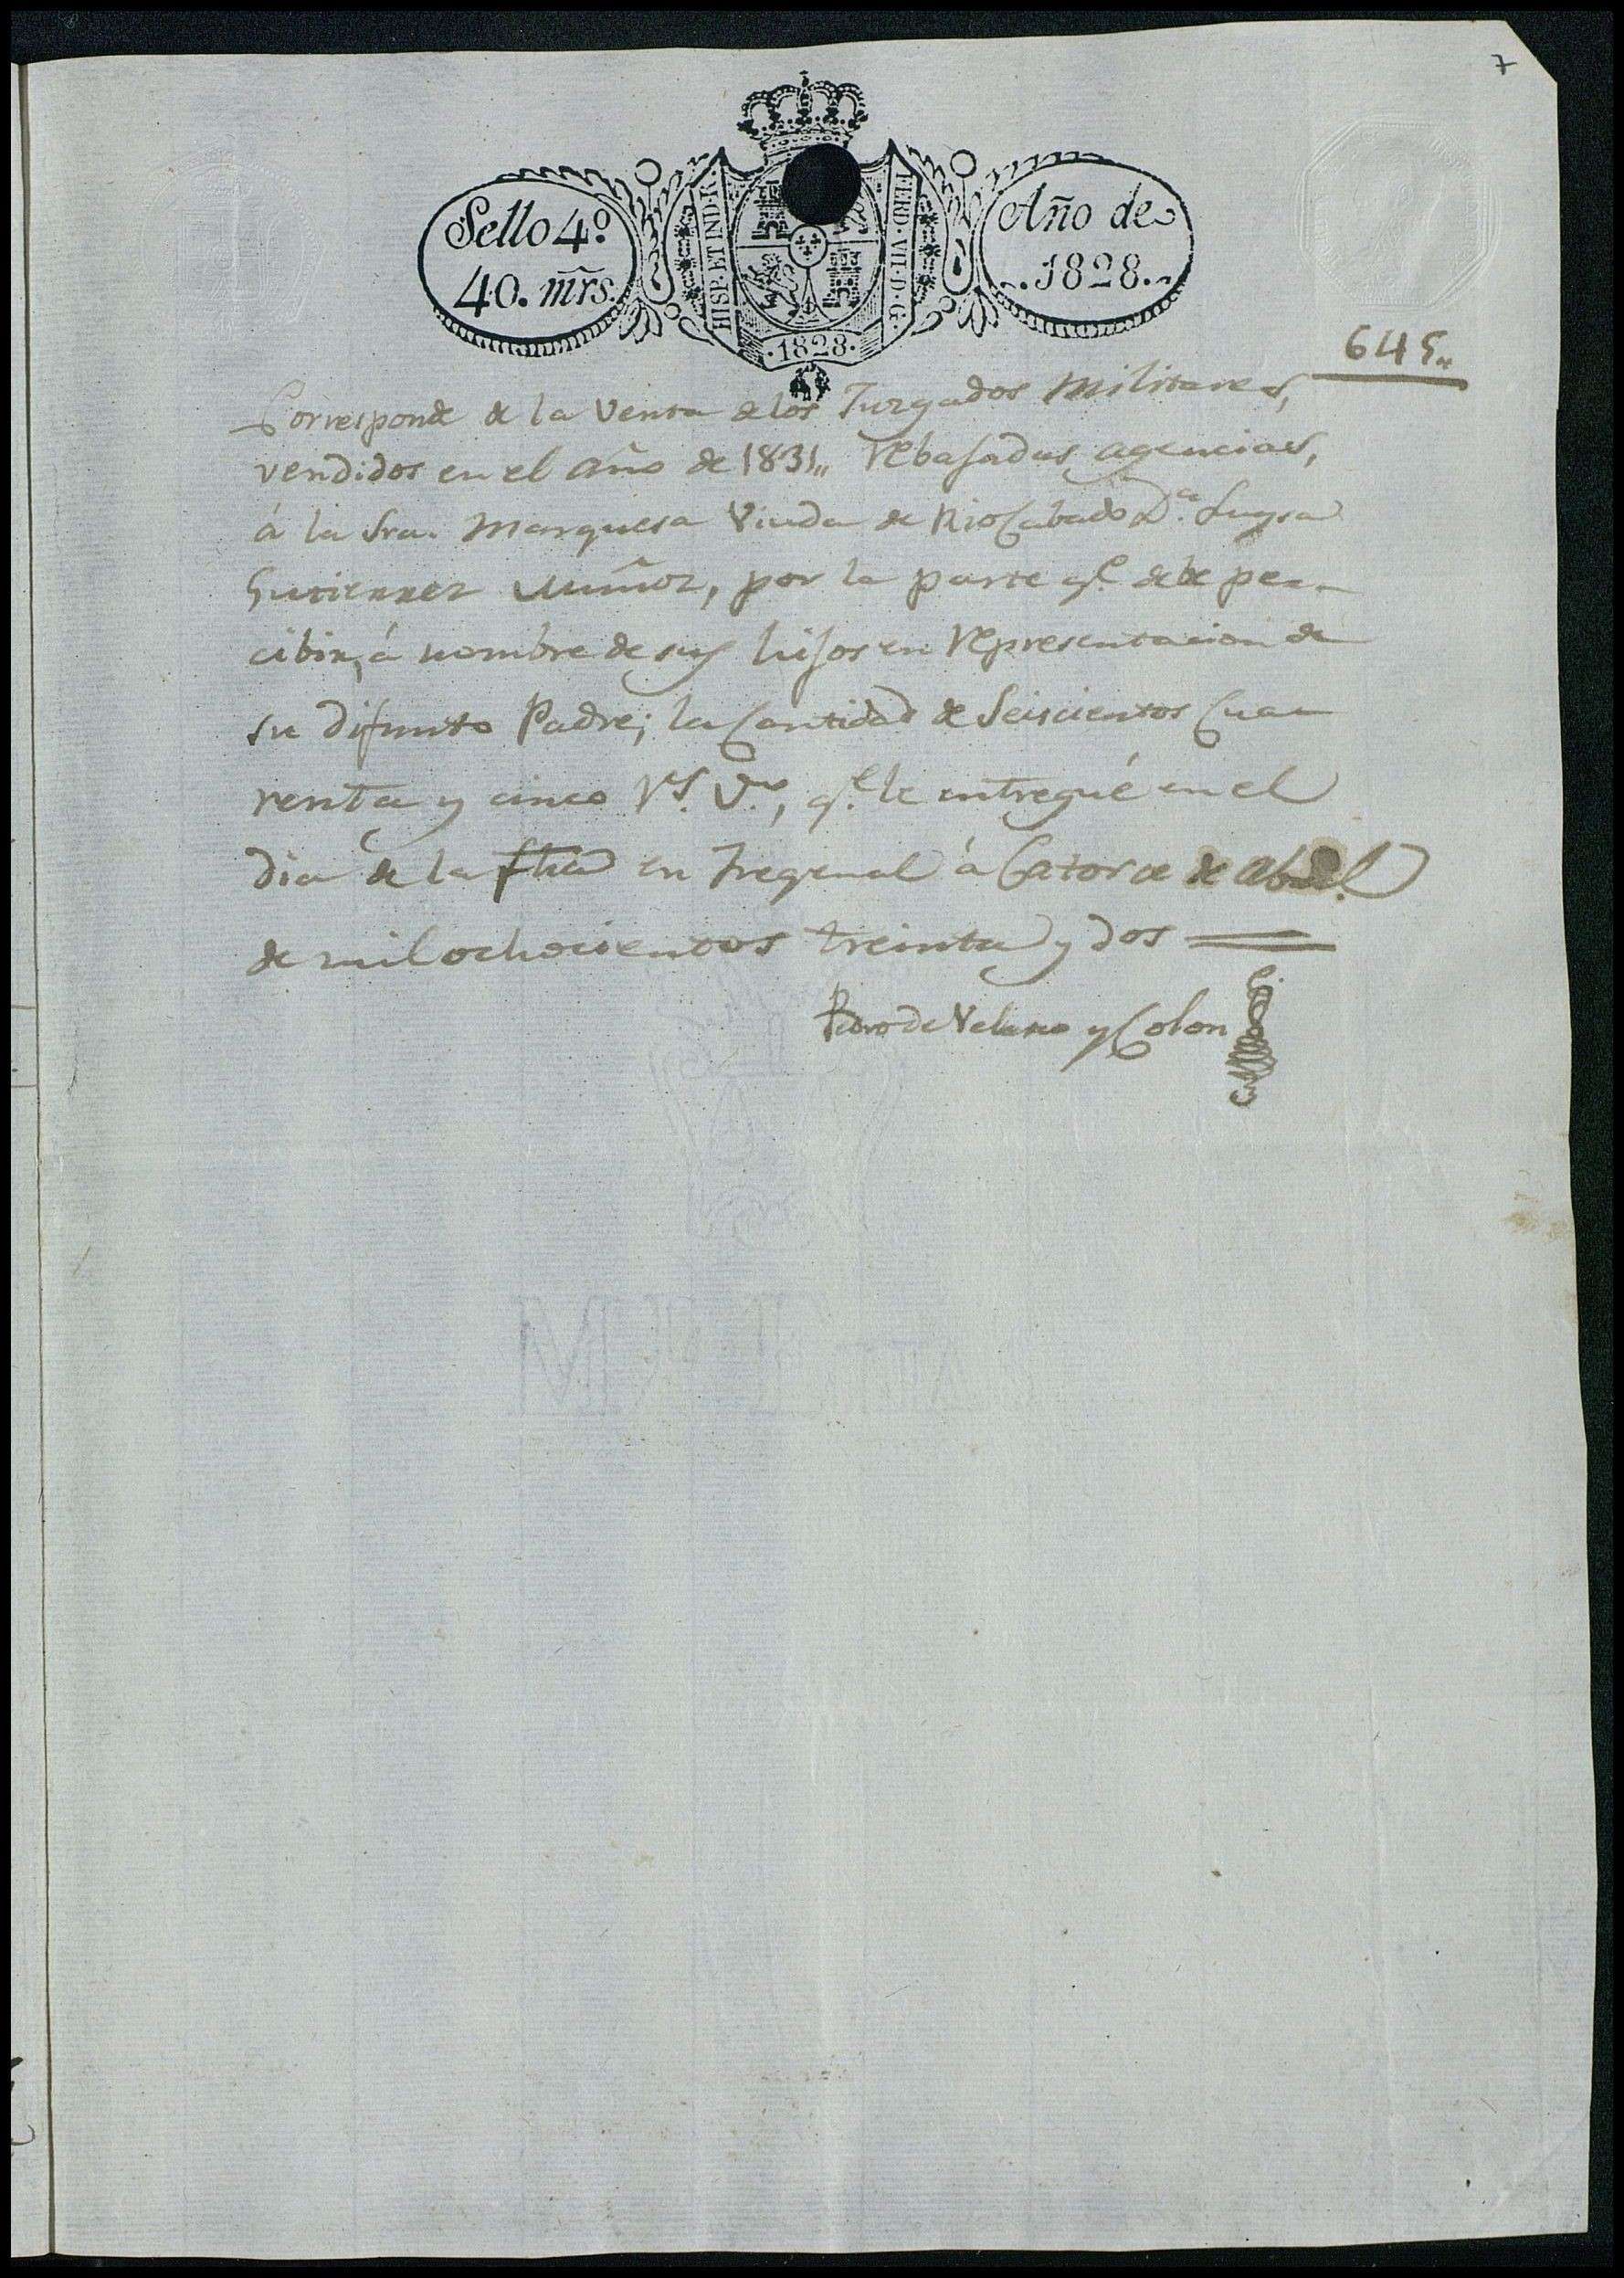 7
Sello 4º
40. mrs.
HISP. ET IND. R.
FERD. VII. D. G.
Año de
1828.
·1828·
645,,
Corresponde de la Venta de los Juzgados Militares,
vendidos en el año de 1831,, rebajadas agencias,
á la Sra. Marquesa Viuda de RioCabado D.ª
Gutierrez Muñoz, por la parte q.e debe per-
cibir, á nombre de sus hijos en representacion de
su difunto Padre; la Cantidad de Seiscientos Cua-
renta y cinco r.s v.n, q.e le entregué en el
dia de la fha en Fregenal á Catorce de Abril
de mil ochocientos treinta y dos
Pedro de Velasco y Colon